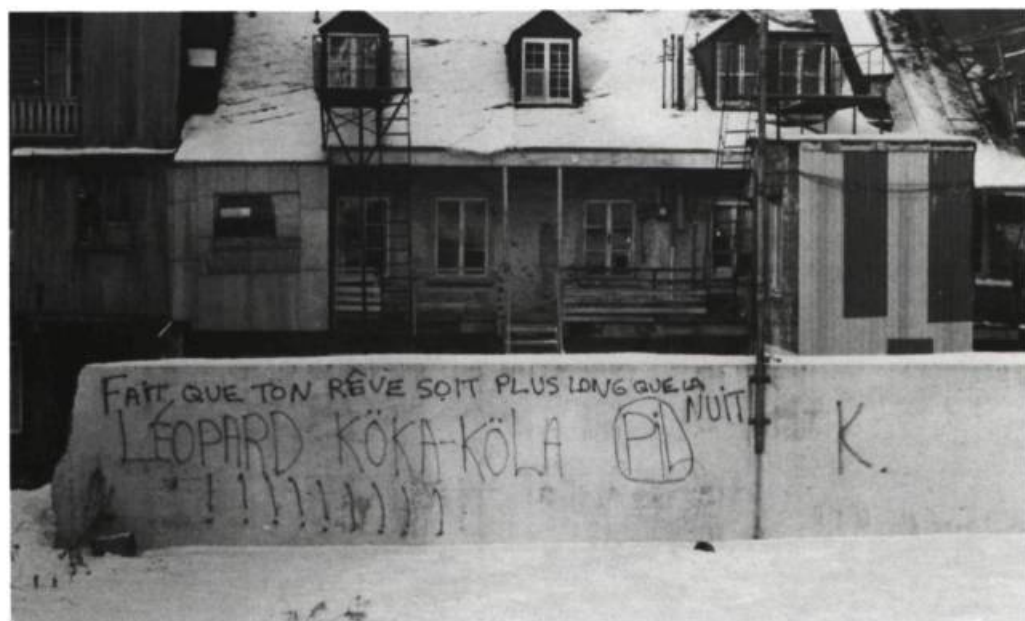 FAIT QUE TON RÊVE SOIT PLUS LONG QUE LA NUIT
LÉOPARD KÖKA-KÖLA PiL K.
! ! ! ! ! ! ! ! !